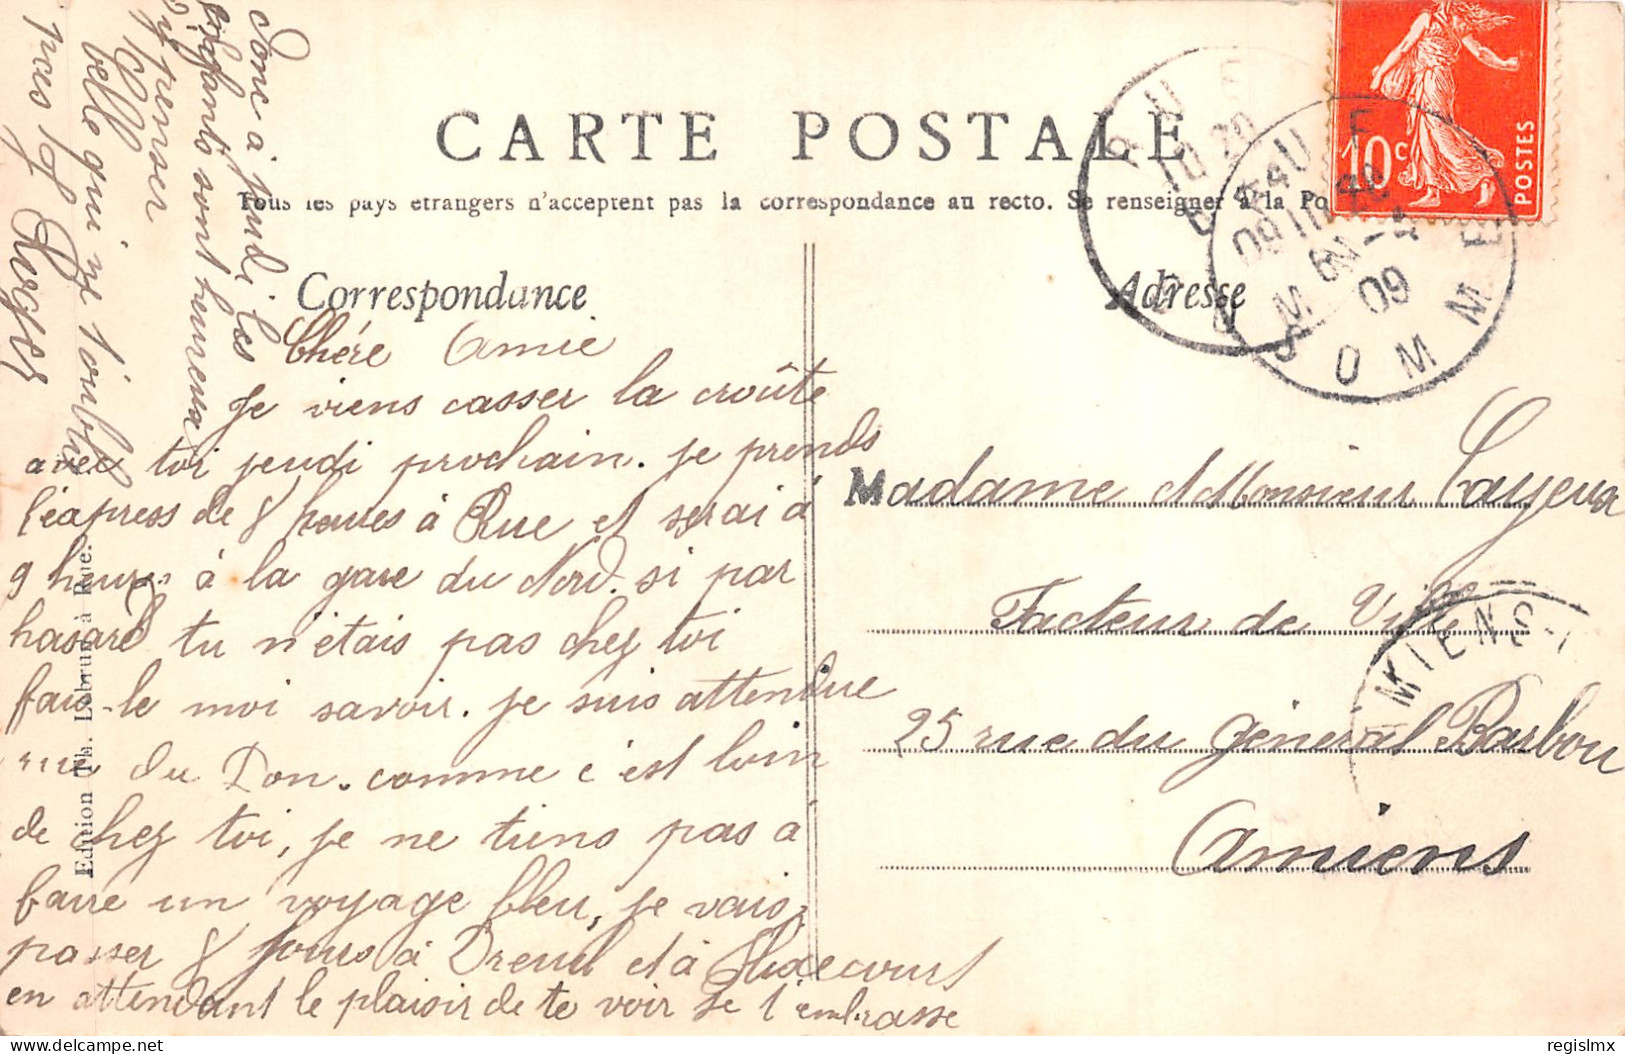 CARTE POSTALE
Tous les pays étrangers n'acceptent pas la correspondance au recto. Se renseigner à la Po
Correspondance
Adresse
10c
POSTES
RUE
SOMME
09
AMIENS
Edition Th. Lebrun à Rue.
Chére Amie
Je viens casser la croûte
avec toi jeudi prochain. je prends
l'express de 8 heures à Rue et serai à
9 heures à la gare du Nord. si par
hasard tu n'étais pas chez toi
fais-le moi savoir. je suis attendue
rue du Don. comme c'est loin
de chez toi, je ne tiens pas à
faire un voyage bleu, je vais
passer 8 jours à Dreuil et à
en attendant le plaisir de te voir je t'embrasse
Donc à jeudi les
enfants sont heureux
d'y penser
Celle qui ne t'oublie
pas
Madame et Monsieur Cayeux
Facteur de Ville
25 rue du Général Barbou
Amiens
regislmx